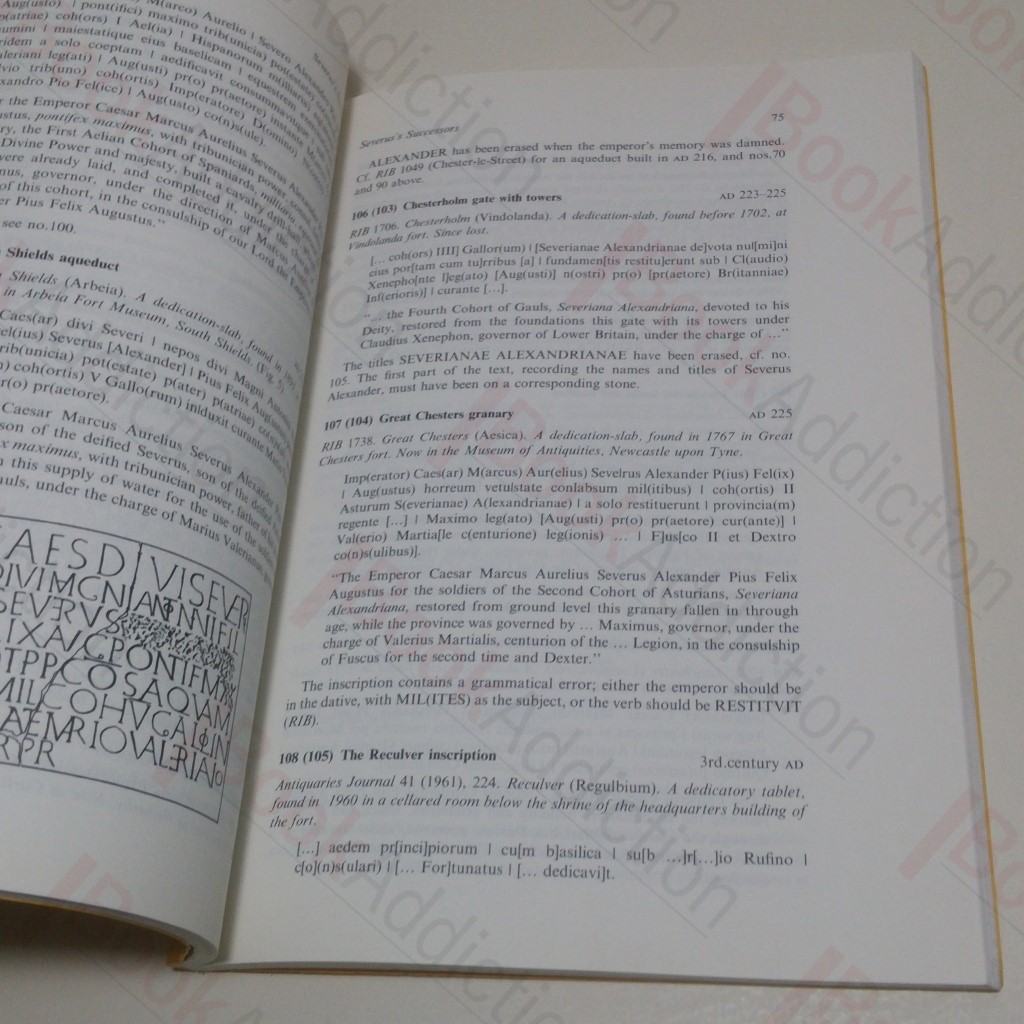 Aug(usto) | pont(ifici) maximo trib(unicia)
p(atriae) coh(ors) I Ael(ia) | Hispanorum m(illiaria)
numini | maiestatique eius baselicam | equestrem
ridem a solo coeptam | aedificavit consummavitque
aleriani leg(ati) | Aug(usti) pr(o) pr(aetore)
trib(uno) coh(ortis) Imp(eratore) D(omino)
xandro Pio Fel(ice) | Aug(usto) co(n)s(ule).
r the Emperor Caesar Marcus Aurelius Severus
ustus, pontifex maximus, with tribunician power,
ry, the First Aelian Cohort of Spaniards,
Divine Power and majesty, built a cavalry drill-hall
were already laid, and completed it, under the
nus, governor, under the direction of Marcus
of this cohort, in the consulship of our Lord the
er Pius Felix Augustus."
see no.100.
Shields aqueduct
Shields (Arbeia). A dedication-slab, found
in Arbeia Fort Museum, South Shields
Caes(ar) divi Severi | nepos divi Magni
el(ius) Severus [Alexander] | Pius Felix Aug(ustus)
rib(unicia) pot(estate) p(ater) p(atriae)
) coh(ortis) V Gallo(rum) in|duxit curante
r(o) pr(aetore).
Caesar Marcus Aurelius Severus Alexander
son of the deified Severus, son of the deified
x maximus, with tribunician power, father of
this supply of water for the use of the
uls, under the charge of Marius Valerianus
AESD|VISEVER
DIVIMGN
SEVERVS
PONTIFM
COSAQVAM
MIL COHVGA
RIOVALERIA
RPR
Severus's Successors
75
ALEXANDER has been erased when the emperor's memory was damned.
Cf. RIB 1049 (Chester-le-Street) for an aqueduct built in AD 216, and nos.70
and 90 above.
106 (103) Chesterholm gate with towers AD 223–225
RIB 1706. Chesterholm (Vindolanda). A dedication-slab, found before 1702, at
Vindolanda fort. Since lost.
[... coh(ors) IIII] Gallor(um) | [Severianae Alexandrianae de]vota nu[mi]ni
eius por[tam cum tu]rribus [a] | fundamen[tis restitu]erunt sub | Cl(audio)
Xenepho[nte l]eg(ato) [Aug(usti)] n(ostri) pr(o) [pr(aetore) Br(itanniae)
Inf(erioris)] | curante [...].
"... the Fourth Cohort of Gauls, Severiana Alexandriana, devoted to his
Deity, restored from the foundations this gate with its towers under
Claudius Xenephon, governor of Lower Britain, under the charge of ..."
The titles SEVERIANAE ALEXANDRIANAE have been erased, cf. no.
105. The first part of the text, recording the names and titles of Severus
Alexander, must have been on a corresponding stone.
107 (104) Great Chesters granary AD 225
RIB 1738. Great Chesters (Aesica). A dedication-slab, found in 1767 in Great
Chesters fort. Now in the Museum of Antiquities, Newcastle upon Tyne.
Imp(erator) Caes(ar) M(arcus) Aur(elius) Seve|rus Alexander P(ius) Fel(ix)
| Aug(ustus) horreum vetu|state conlabsum mil(itibus) | coh(ortis) II
Asturum S(everianae) A(lexandrianae) | a solo restituerunt | provincia(m)
regente [...] | Maximo leg(ato) [Aug(usti) pr(o) pr(aetore) cur(ante)] |
Val(erio) Martia[le c(enturione) leg(ionis) ... | F]us[co II et Dextro
co(n)s(ulibus)].
"The Emperor Caesar Marcus Aurelius Severus Alexander Pius Felix
Augustus for the soldiers of the Second Cohort of Asturians, Severiana
Alexandriana, restored from ground level this granary fallen in through
age, while the province was governed by ... Maximus, governor, under the
charge of Valerius Martialis, centurion of the ... Legion, in the consulship
of Fuscus for the second time and Dexter."
The inscription contains a grammatical error; either the emperor should be
in the dative, with MIL(ITES) as the subject, or the verb should be RESTITVIT
(RIB).
108 (105) The Reculver inscription 3rd.century AD
Antiquaries Journal 41 (1961), 224. Reculver (Regulbium). A dedicatory tablet,
found in 1960 in a cellared room below the shrine of the headquarters building of
the fort.
[...] aedem pr[inci]piorum | cu[m b]asilica | su[b ...]r[...]io Rufino |
c[o](n)s(ulari) | [... For]tunatus | [... dedicavi]t.
BookAddiction